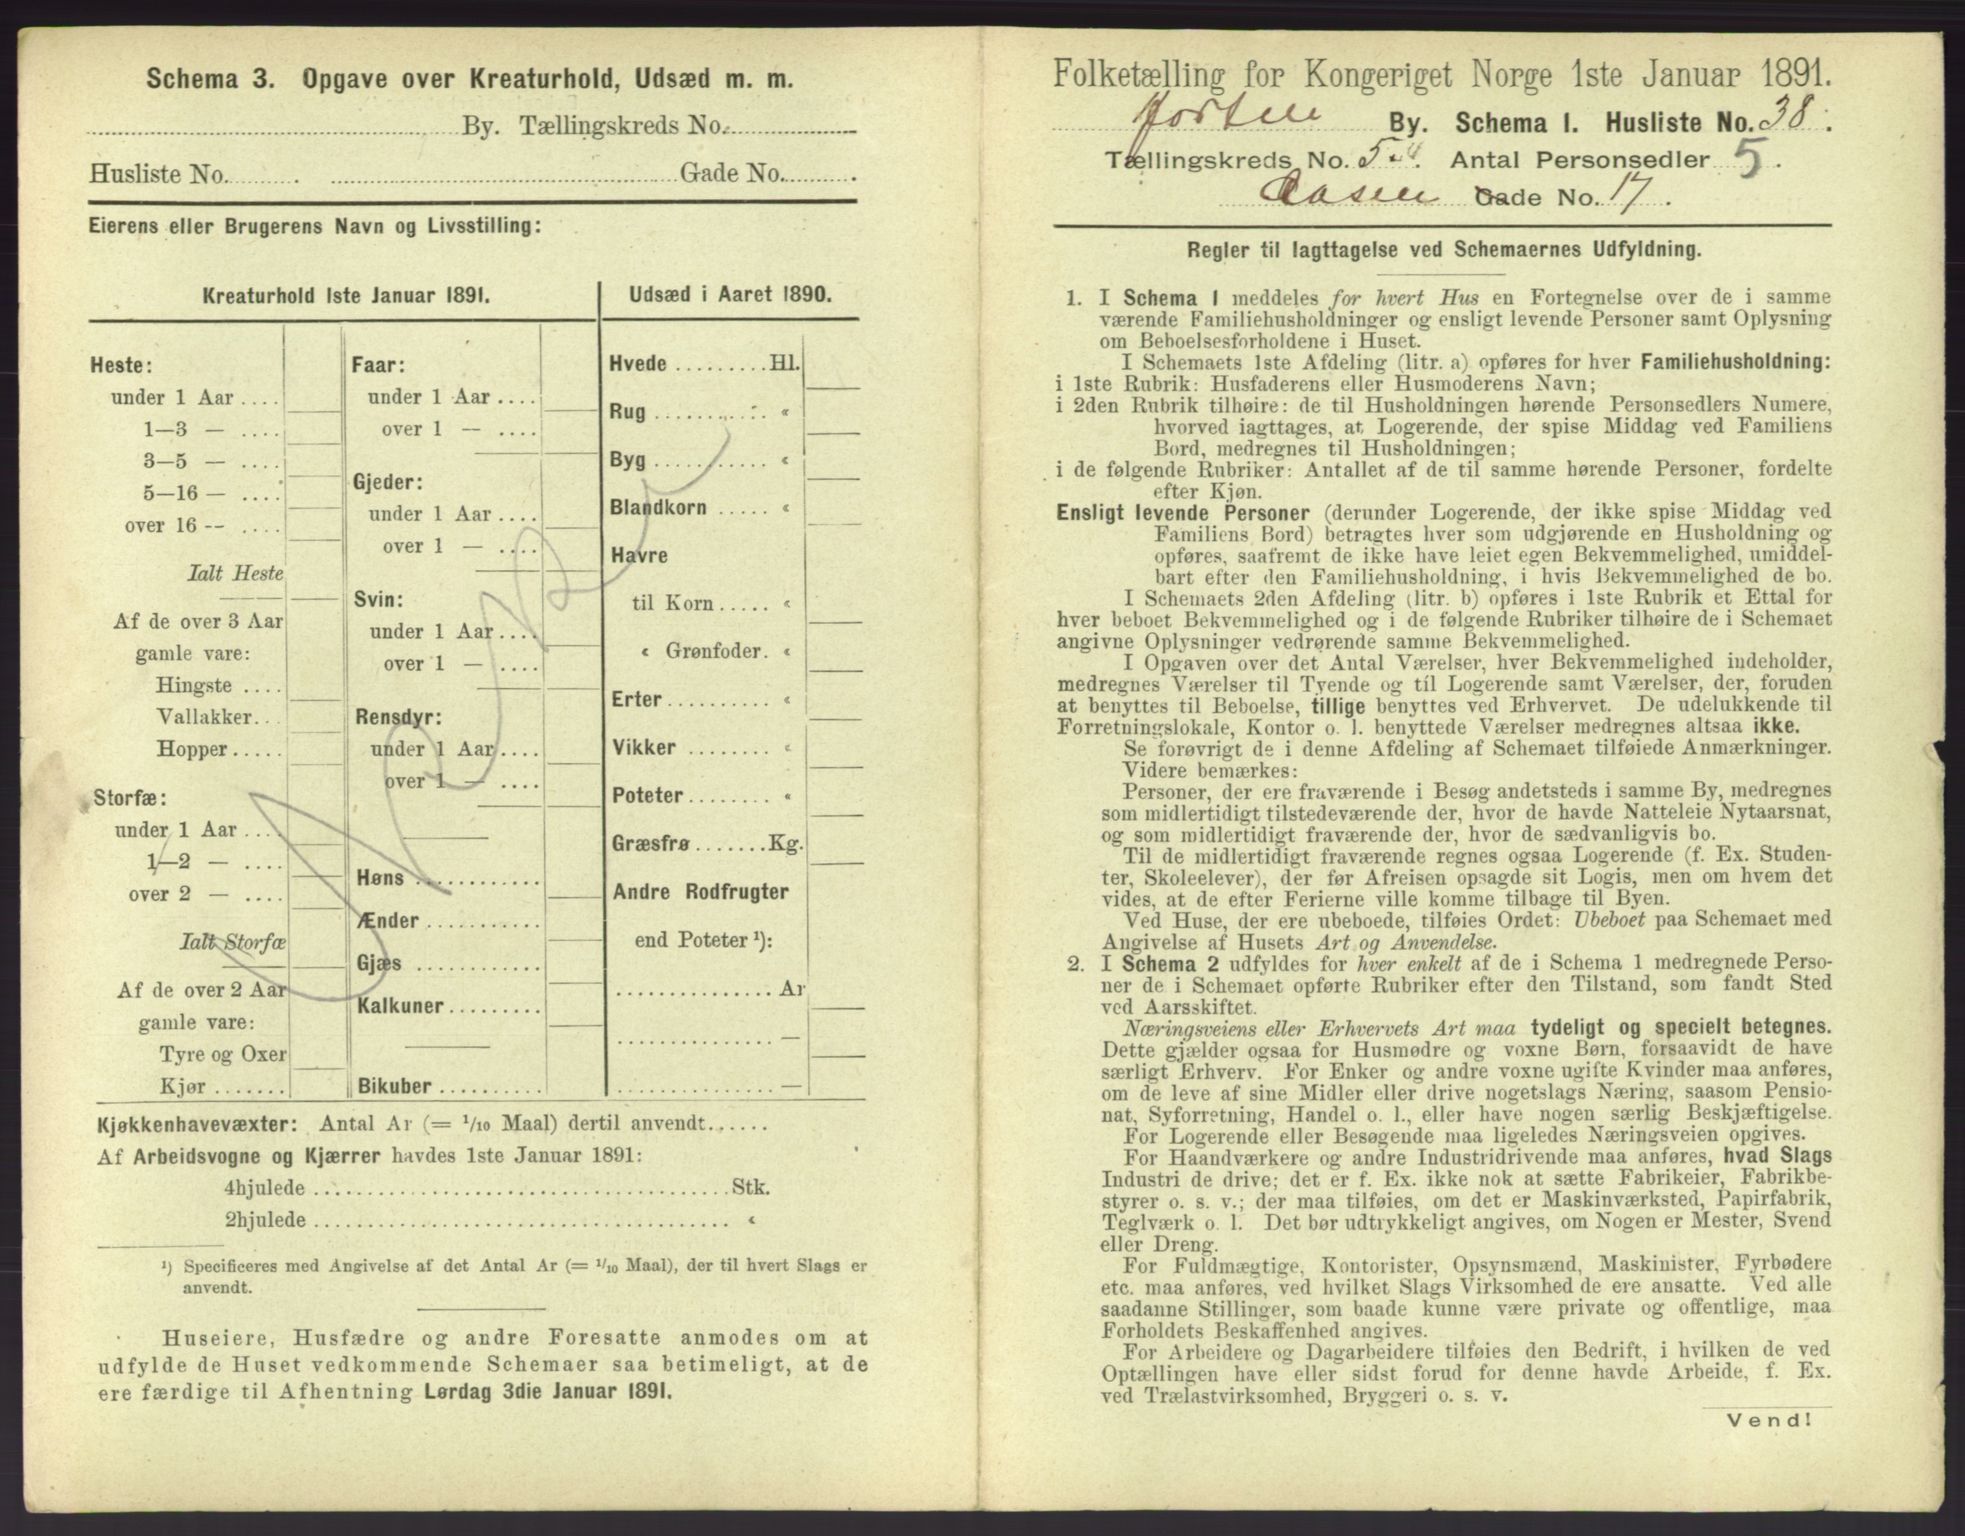 Schema 3. Opgave over Kreaturhold, Udsæd m. m.
By. Tællingskreds No.
Husliste No. Gade No.
Eierens eller Brugerens Navn og Livsstilling:
Kreaturhold 1ste Januar 1891.
Heste:
under 1 Aar ....
1—3 — ....
3—5 — ....
5—16 — ....
over 16 -- ....
Ialt Heste
Af de over 3 Aar
gamle vare:
Hingste ....
Vallakker...
Hopper .....
Storfæ:
under 1 Aar ....
1—2 — ....
over 2 — ....
Ialt Storfæ
Af de over 2 Aar
gamle vare:
Tyre og Oxer
Kjør .......
Faar:
under 1 Aar ....
over 1 — ....
Gjeder:
under 1 Aar ....
over 1 — ....
Svin:
under 1 Aar ....
over 1 — ....
Rensdyr:
under 1 Aar ....
over 1 — ....
Høns ............
Ænder ...........
Gjæs ............
Kalkuner .........
Bikuber ..........
Udsæd i Aaret 1890.
Hvede .........Hl.
Rug .......... «
Byg .......... «
Blandkorn ..... «
Havre
til Korn ..... «
« Grønfoder. «
Erter ......... «
Vikker ........ «
Poteter ........ «
Græsfrø .......Kg.
Andre Rodfrugter
end Poteter ¹):
............... Ar
............... —
............... —
Kjøkkenhavevæxter: Antal Ar (= 1/10 Maal) dertil anvendt......
Af Arbeidsvogne og Kjærrer havdes 1ste Januar 1891:
4hjulede ........................................Stk.
2hjulede ........................................ «
¹) Specificeres med Angivelse af det Antal Ar (= 1/10 Maal), der til hvert Slags er
anvendt.
Huseiere, Husfædre og andre Foresatte anmodes om at
udfylde de Huset vedkommende Schemaer saa betimeligt, at de
ere færdige til Afhentning Lørdag 3die Januar 1891.
Folketælling for Kongeriget Norge 1ste Januar 1891.
By. Schema 1. Husliste No. 38.
Tællingskreds No. 5. Antal Personsedler 5.
Gade No. 17.
Regler til Iagttagelse ved Schemaernes Udfyldning.
1. I Schema 1 meddeles for hvert Hus en Fortegnelse over de i samme
værende Familiehusholdninger og ensligt levende Personer samt Oplysning
om Beboelsesforholdene i Huset.
I Schemaets 1ste Afdeling (litr. a) opføres for hver Familiehusholdning:
i 1ste Rubrik: Husfaderens eller Husmoderens Navn;
i 2den Rubrik tilhøire: de til Husholdningen hørende Personsedlers Numere,
hvorved iagttages, at Logerende, der spise Middag ved Familiens
Bord, medregnes til Husholdningen;
i de følgende Rubriker: Antallet af de til samme hørende Personer, fordelte
efter Kjøn.
Ensligt levende Personer (derunder Logerende, der ikke spise Middag ved
Familiens Bord) betragtes hver som udgjørende en Husholdning og
opføres, saafremt de ikke have leiet egen Bekvemmelighed, umiddel-
bart efter den Familiehusholdning, i hvis Bekvemmelighed de bo.
I Schemaets 2den Afdeling (litr. b) opføres i 1ste Rubrik et Ettal for
hver beboet Bekvemmelighed og i de følgende Rubriker tilhøire de i Schemaet
angivne Oplysninger vedrørende samme Bekvemmelighed.
I Opgaven over det Antal Værelser, hver Bekvemmelighed indeholder,
medregnes Værelser til Tyende og til Logerende samt Værelser, der, foruden
at benyttes til Beboelse, tillige benyttes ved Erhvervet. De udelukkende til
Forretningslokale, Kontor o. l. benyttede Værelser medregnes altsaa ikke.
Se forøvrigt de i denne Afdeling af Schemaet tilføiede Anmærkninger.
Videre bemærkes:
Personer, der ere fraværende i Besøg andetsteds i samme By, medregnes
som midlertidigt tilstedeværende der, hvor de havde Natteleie Nytaarsnat,
og som midlertidigt fraværende der, hvor de sædvanligvis bo.
Til de midlertidigt fraværende regnes ogsaa Logerende (f. Ex. Studen-
ter, Skoleelever), der før Afreisen opsagde sit Logis, men om hvem det
vides, at de efter Ferierne ville komme tilbage til Byen.
Ved Huse, der ere ubeboede, tilføies Ordet: Ubeboet paa Schemaet med
Angivelse af Husets Art og Anvendelse.
2. I Schema 2 udfyldes for hver enkelt af de i Schema 1 medregnede Perso-
ner de i Schemaet opførte Rubriker efter den Tilstand, som fandt Sted
ved Aarsskiftet.
Næringsveiens eller Erhvervets Art maa tydeligt og specielt betegnes.
Dette gjælder ogsaa for Husmødre og voxne Børn, forsaavidt de have
særligt Erhverv. For Enker og andre voxne ugifte Kvinder maa anføres,
om de leve af sine Midler eller drive nogetslags Næring, saasom Pensio-
nat, Syforretning, Handel o. l., eller have nogen særlig Beskjæftigelse.
For Logerende eller Besøgende maa ligeledes Næringsveien opgives.
For Haandværkere og andre Industridrivende maa anføres, hvad Slags
Industri de drive; det er f. Ex. ikke nok at sætte Fabrikeier, Fabrikbe-
styrer o. s. v.; der maa tilføies, om det er Maskinværksted, Papirfabrik,
Teglværk o. l. Det bør udtrykkeligt angives, om Nogen er Mester, Svend
eller Dreng.
For Fuldmægtige, Kontorister, Opsynsmænd, Maskinister, Fyrbødere
etc. maa anføres, ved hvilket Slags Virksomhed de ere ansatte. Ved alle
saadanne Stillinger, som baade kunne være private og offentlige, maa
Forholdets Beskaffenhed angives.
For Arbeidere og Dagarbeidere tilføies den Bedrift, i hvilken de ved
Optællingen have eller sidst forud for denne havde Arbeide, f. Ex.
ved Trælastvirksomhed, Bryggeri o. s. v.
Vend!